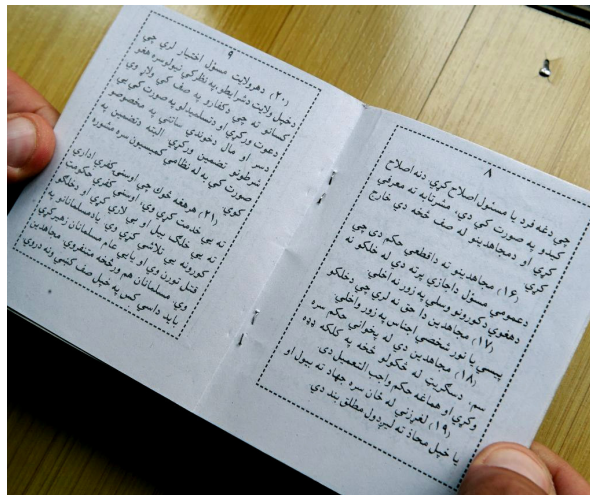 ۸
چي دغه فرد يا مسئول اصلاح كړي، دنه اصلاح
كيدو په صورت كي دي، مشرتابه ته معرفي
كړي او دمجاهدينو له صف څخه دي خارج
كړي
(۱۶) مجاهدينو ته داقطعي حكم دى چي
دعمومي مسئول داجازي پرته دي له خلكو نه
دهغوى دكورونو وسلي په زور نه اخلي
(۱۷) مجاهدين دا حق نه لري چي دخلكو
پيسي يا نور شخصي اجناس په زور واخلي
(۱۸) مجاهدين دي له پخواني حكم سره
سم، دسگريټ له څكولو څخه په كلكه ډډه
وكړي او همدغه حكم واجب التعميل دى
(۱۹) لغړزني له ځان سره جهاد ته بيول او
يا خپل محاذ ته ليږدول مطلق بند دي
۹
(۲۰) دهرولايت مسئول اختيار لري چي
دخپل ولايت دشرايطو په نظر كي نيولوسره هغو
كسانو ته چي دكفارو په صف كي ولاړ وي
دعوت وركړي او دتسليميدلو په صورت كي يي
دسر او مال دخوندي ساتني په مخصوصو
شرطونو تضمين وركړي البته دتضمين په
صورت كي به له نظامي كميسيون سره مشوره
كوي
(۲۱) هرهغه څوك چي اوسني كفري ادارې
ته يي خدمت كړى وي، اوسني كفري حكومت
ته يي خلك بيل او يي لارې كړي او دخلكو
كورونه يي تلاشي كړي وي يادمسلمانانو په
قتل تورن وي او بايي عام مسلمانان زهير كړي
وي مسلمانان هم ورڅخه متنفروي، مجاهدين
بايد داسي كس په خپل صف كښي ونه دروي